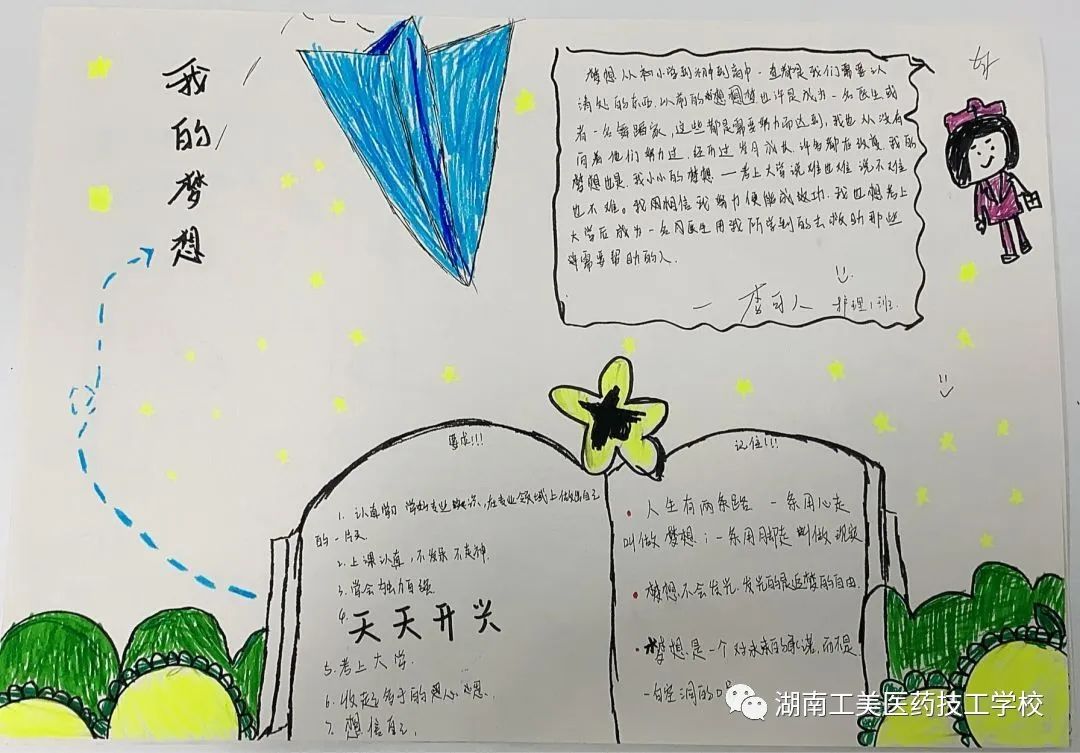 我的梦想
梦想从和小学到初中到高中一直都是我们需要认
清处的东西.以前的梦想也许是成为一名医生或
者一名舞蹈家,这些都是需要努力而达到,我也从没有
向着他们努力过.经历过岁月成长.许多都在改变.我的
梦想也是.我小小的梦想—考上大学说难也难 说不难
也不难。我用相信我努力便能成功.我也想考上
大学后成为一名医生用我所学到的去救助那些
需要帮助的人.
一 李可人 护理1班.
要求!!!
1. 认真学习 学的专业知识,在专业领域上做出自己
的一片天
2.上课认真,不发呆不走神.
3.学会独力自强
4.天天开兴
5.考上大学.
6.收起多于的思心思.
7. 想信自己
记住!!!
人生有两条路 一条用心走
叫做梦想;一条用脚走 叫做现实
梦想不会发光.发光的是追梦的自由.
梦想是一个对永威的承诺.而不是
一句空洞的口号
湖南工美医药技工学校